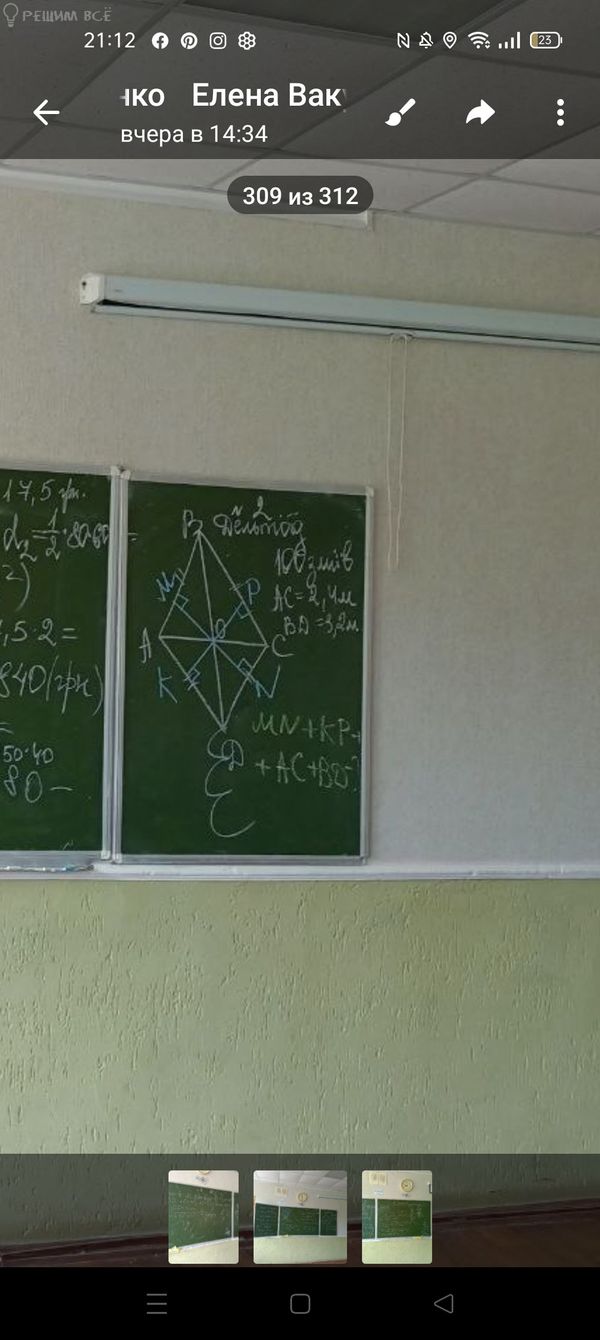 РЕШИМ ВСЁ
21:12
23
нко Елена Вак
вчера в 14:34
309 из 312
17,5 грн.
d₂ = 1/2 · 80·60 =
²)
,5·2 =
840 (грн)
=
50·40
80 –
2
B Дельтоїд
100 зміїв
M P
AC = 2,4 м
BD = 3,2 м
A O C
K N
MN + KP +
D + AC + BD - ?